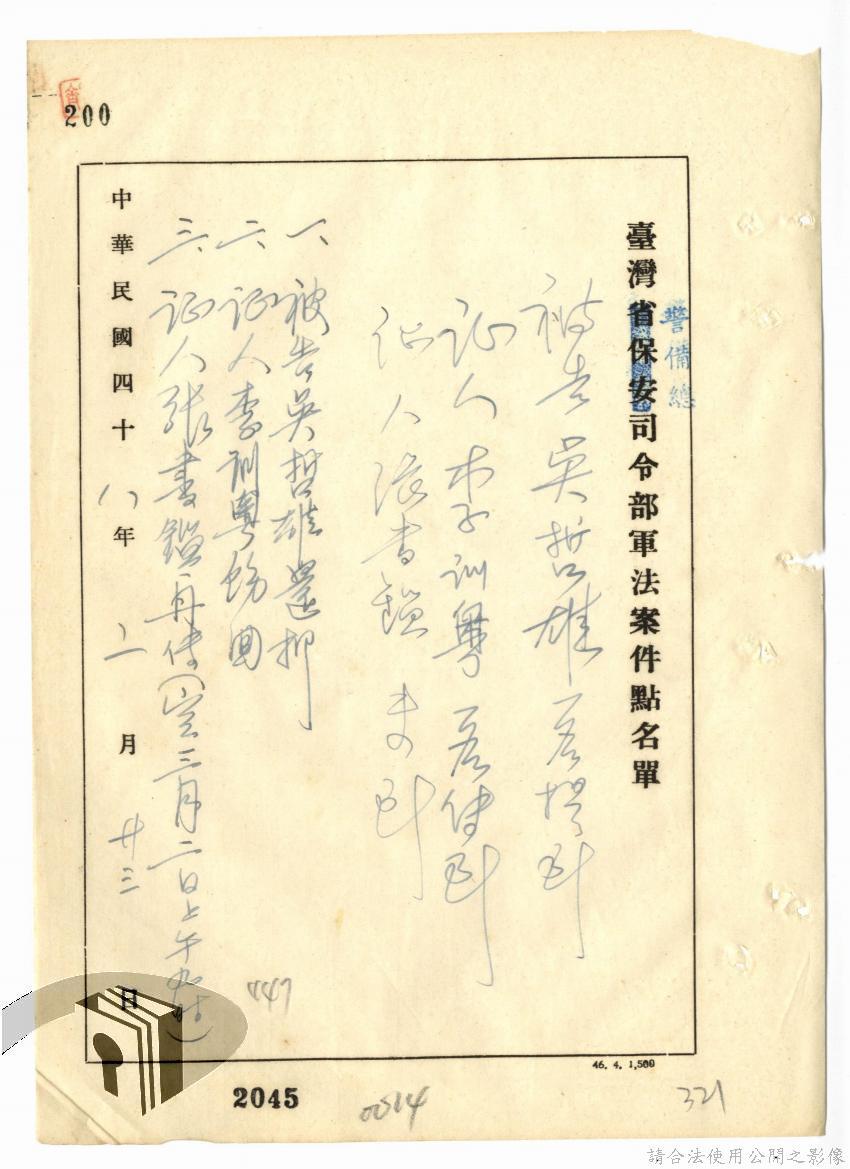 200
臺灣省保安司令部軍法案件點名單
警備總
被告吳哲雄 應提到
证人李訓粵 應传到
证人張書鎧 未到
一、被告吳哲雄還押
二、证人李訓粵飭回
三、证人張書鎧再传(定三月二日上午九时)
中華民國四十八年二月廿三日
447
46. 4. 1,500
2045
0014
321
請合法使用公開之影像